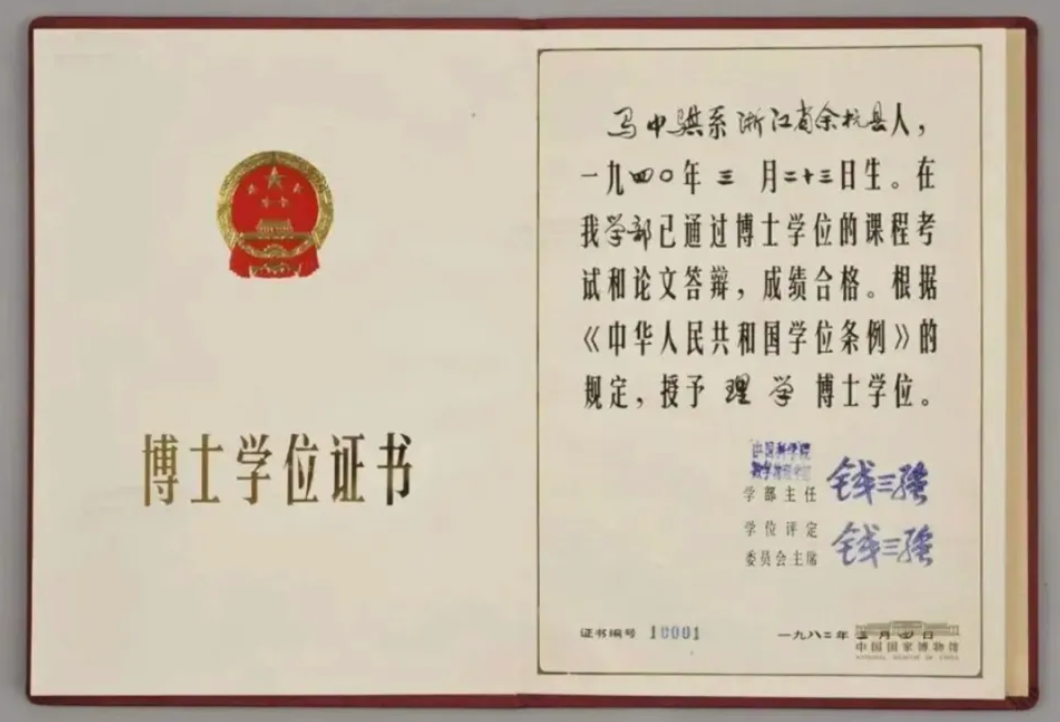 博士学位证书
马中骐系浙江省余杭县人，
一九四〇年三月二十三日生。在
我学部已通过博士学位的课程考
试和论文答辩，成绩合格。根据
《中华人民共和国学位条例》的
规定，授予理学博士学位。
中国科学院
数学物理学部
学部主任 钱三强
学位评定
委员会主席 钱三强
证书编号 10001
一九八二年三月四日
中国国家博物馆
NATIONAL MUSEUM OF CHINA